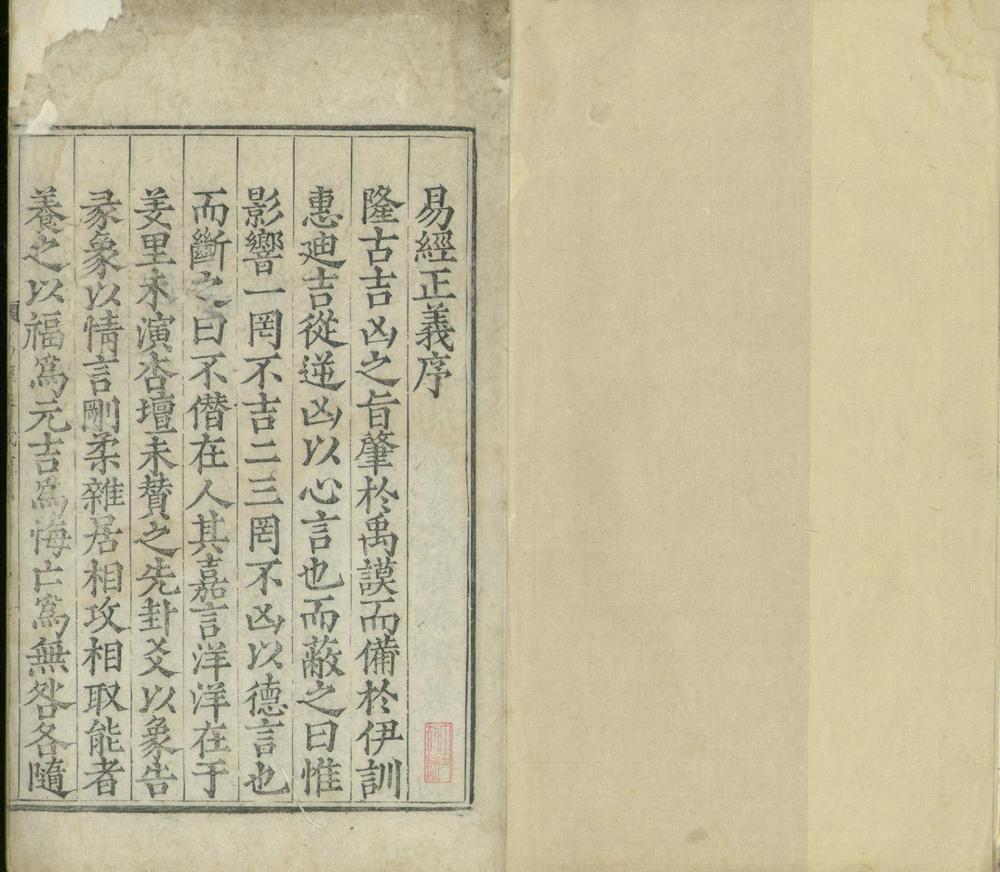 易經正義序
隆古吉凶之旨肇於禹謨而備於伊訓
惠廸吉從逆凶以心言也而蔽之曰惟
影響一罔不吉二三罔不凶以德言也
而斷之曰不僭在人其嘉言洋洋在于
羑里未演杏壇未賛之先卦爻以象告
彖象以情言剛柔雜居相攻相取能者
養之以福爲元吉爲悔亡爲無咎各隨